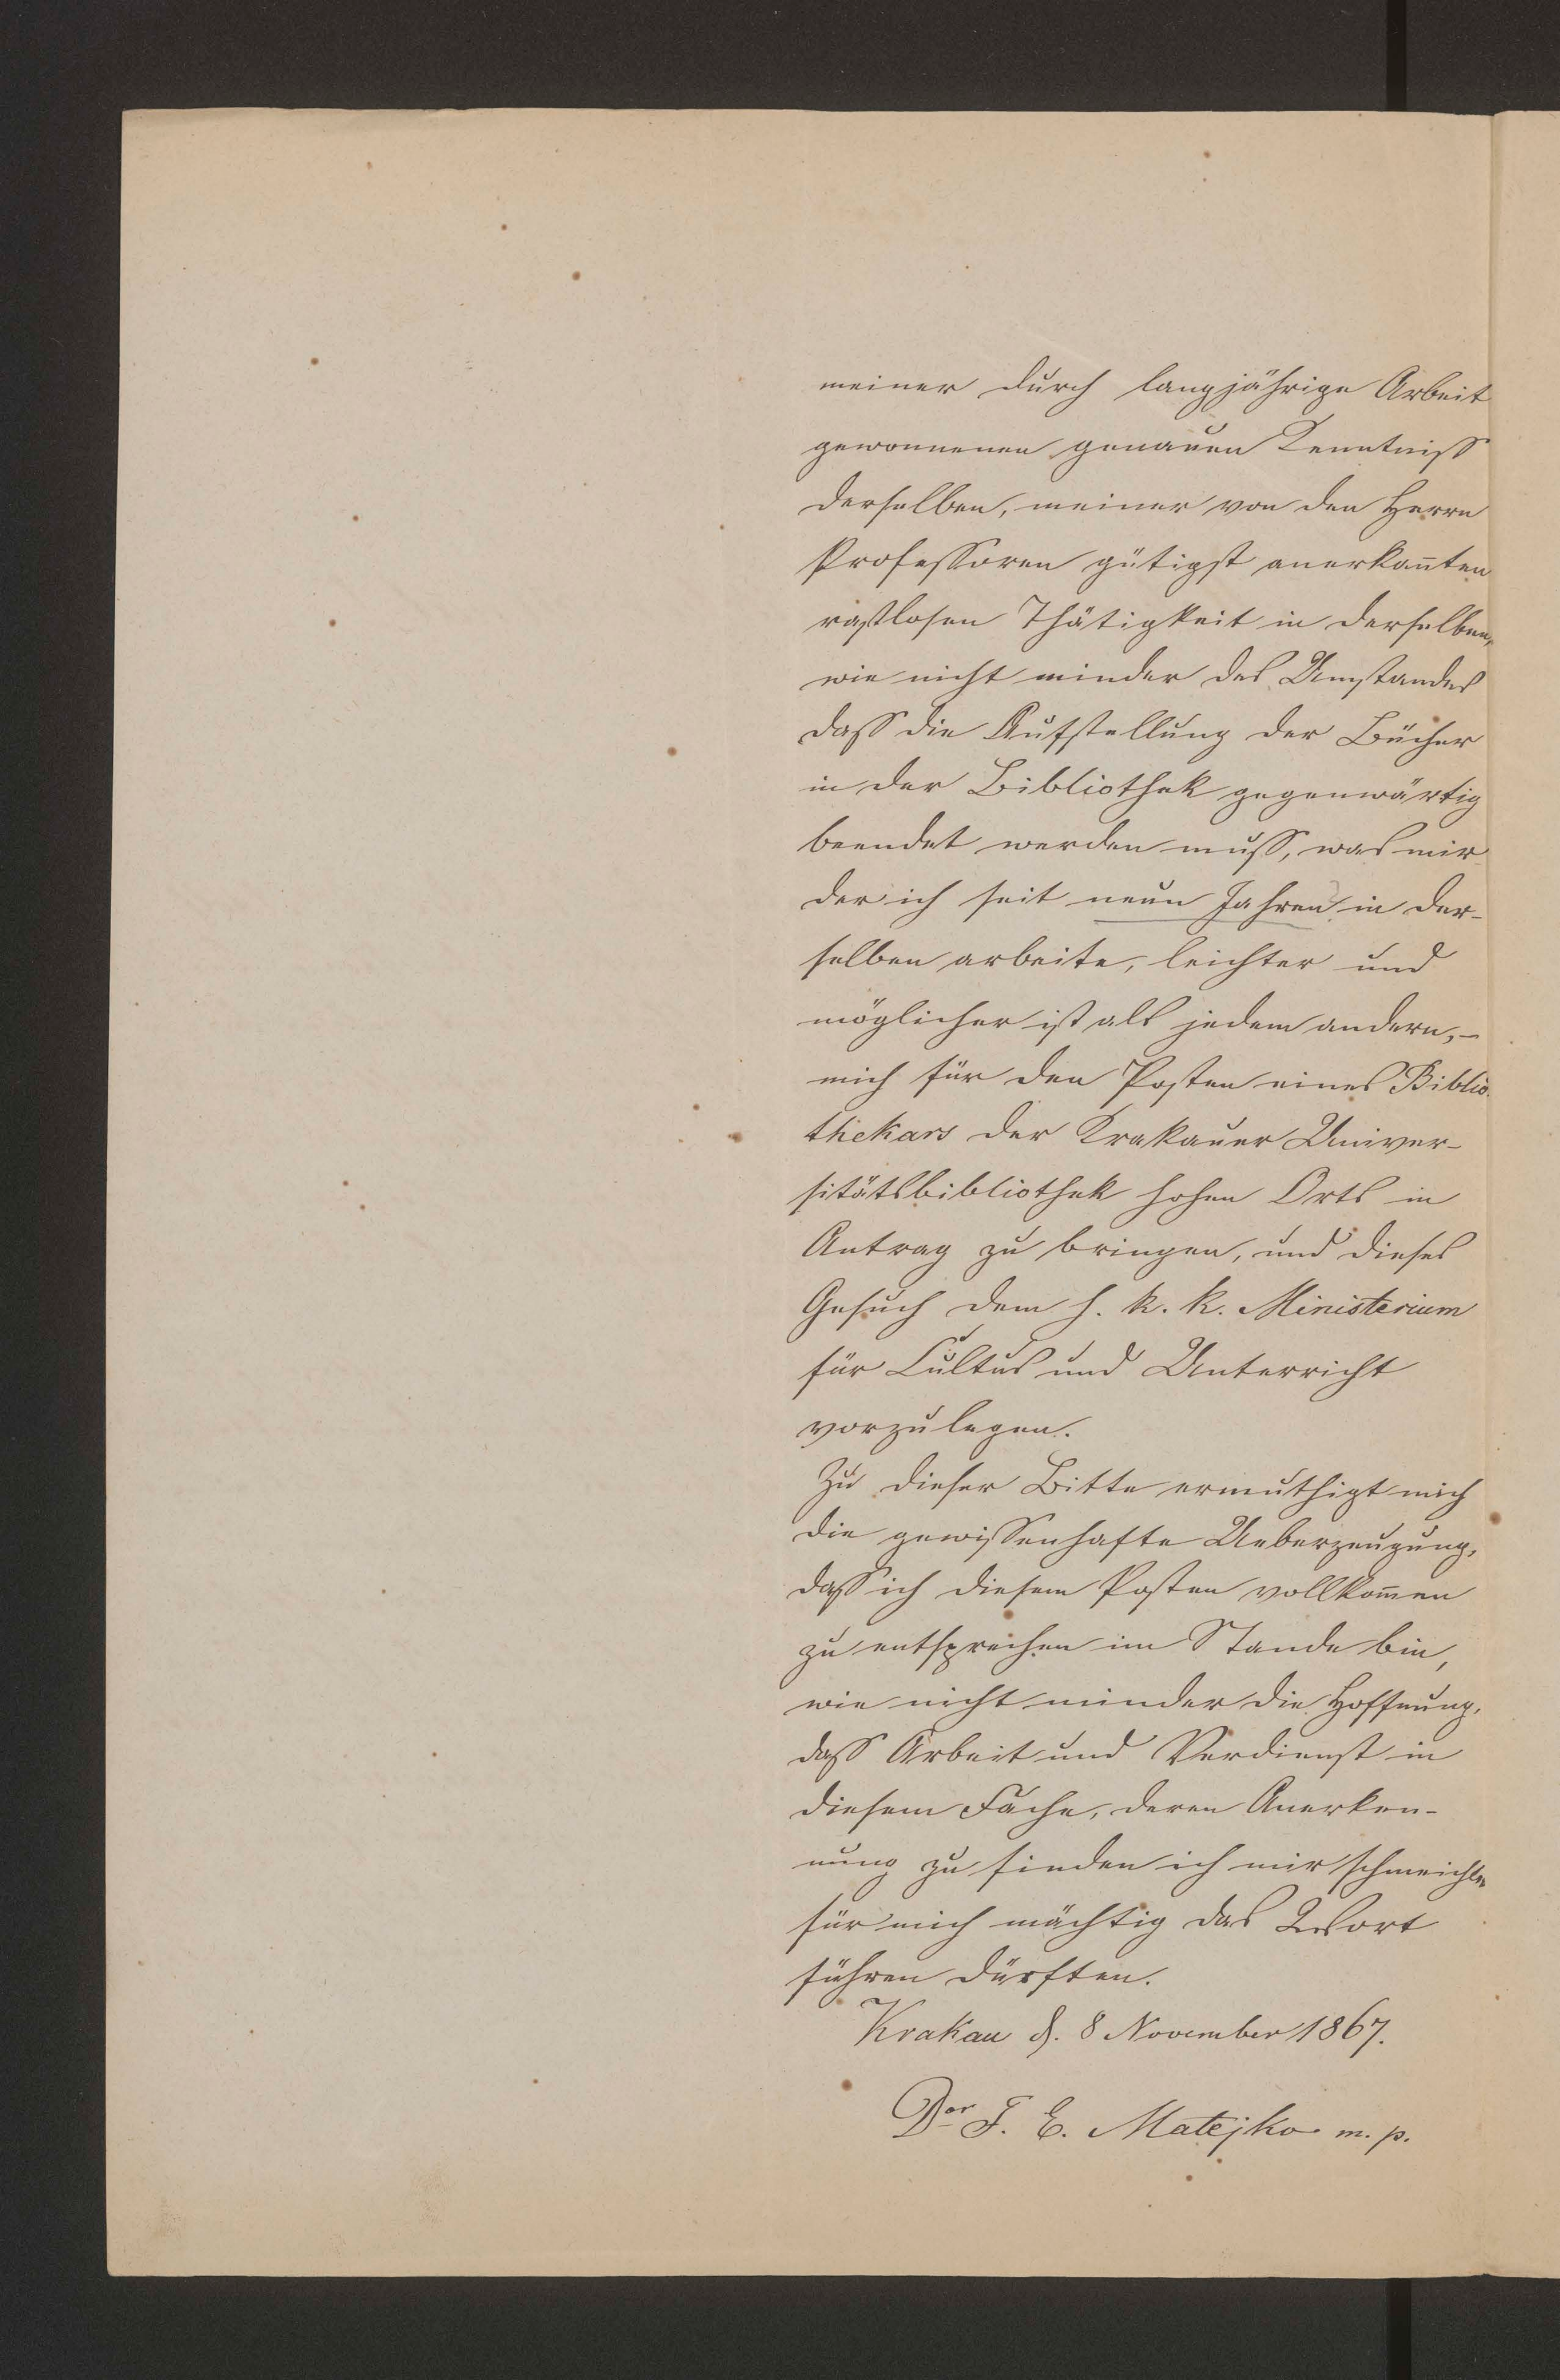 meiner durch langjährige Arbeit
gewonnenen genauen Kenntniss
derselben, meiner von den Herrn
Professoren gütigst anerkan̄ten
rastlosen Thätigkeit in derselben,
wie nicht minder des Umstandes
dass die Aufstellung der Bücher
in der Bibliothek gegenwärtig
beendet werden muss, was mir
der ich seit neun Jahren in der-
selben arbeite, leichter und
möglicher ist als jedem andern,-
mich für den Posten eines Biblio-
thekars der Krakauer Univer-
sitätsbibliothek hohen Orts in
Antrag zu bringen, und dieses
Gesuch dem h. k. k. Ministerium
für Cultus und Unterricht
vorzulegen.
Zu dieser Bitte ermuthigt mich
die gewissenhafte Ueberzeugung,
dass ich diesem Posten vollkom̄en
zu entsprechen im Stande bin,
wie nicht minder die Hoffnung,
dass Arbeit und Verdienst in
diesem Fache, deren Anerken-
nung zu finden ich mir schmeichle
für mich mächtig das Wort
führen dürften.
Krakau d. 8 November 1867.
Dor F. E. Matejko m. p.